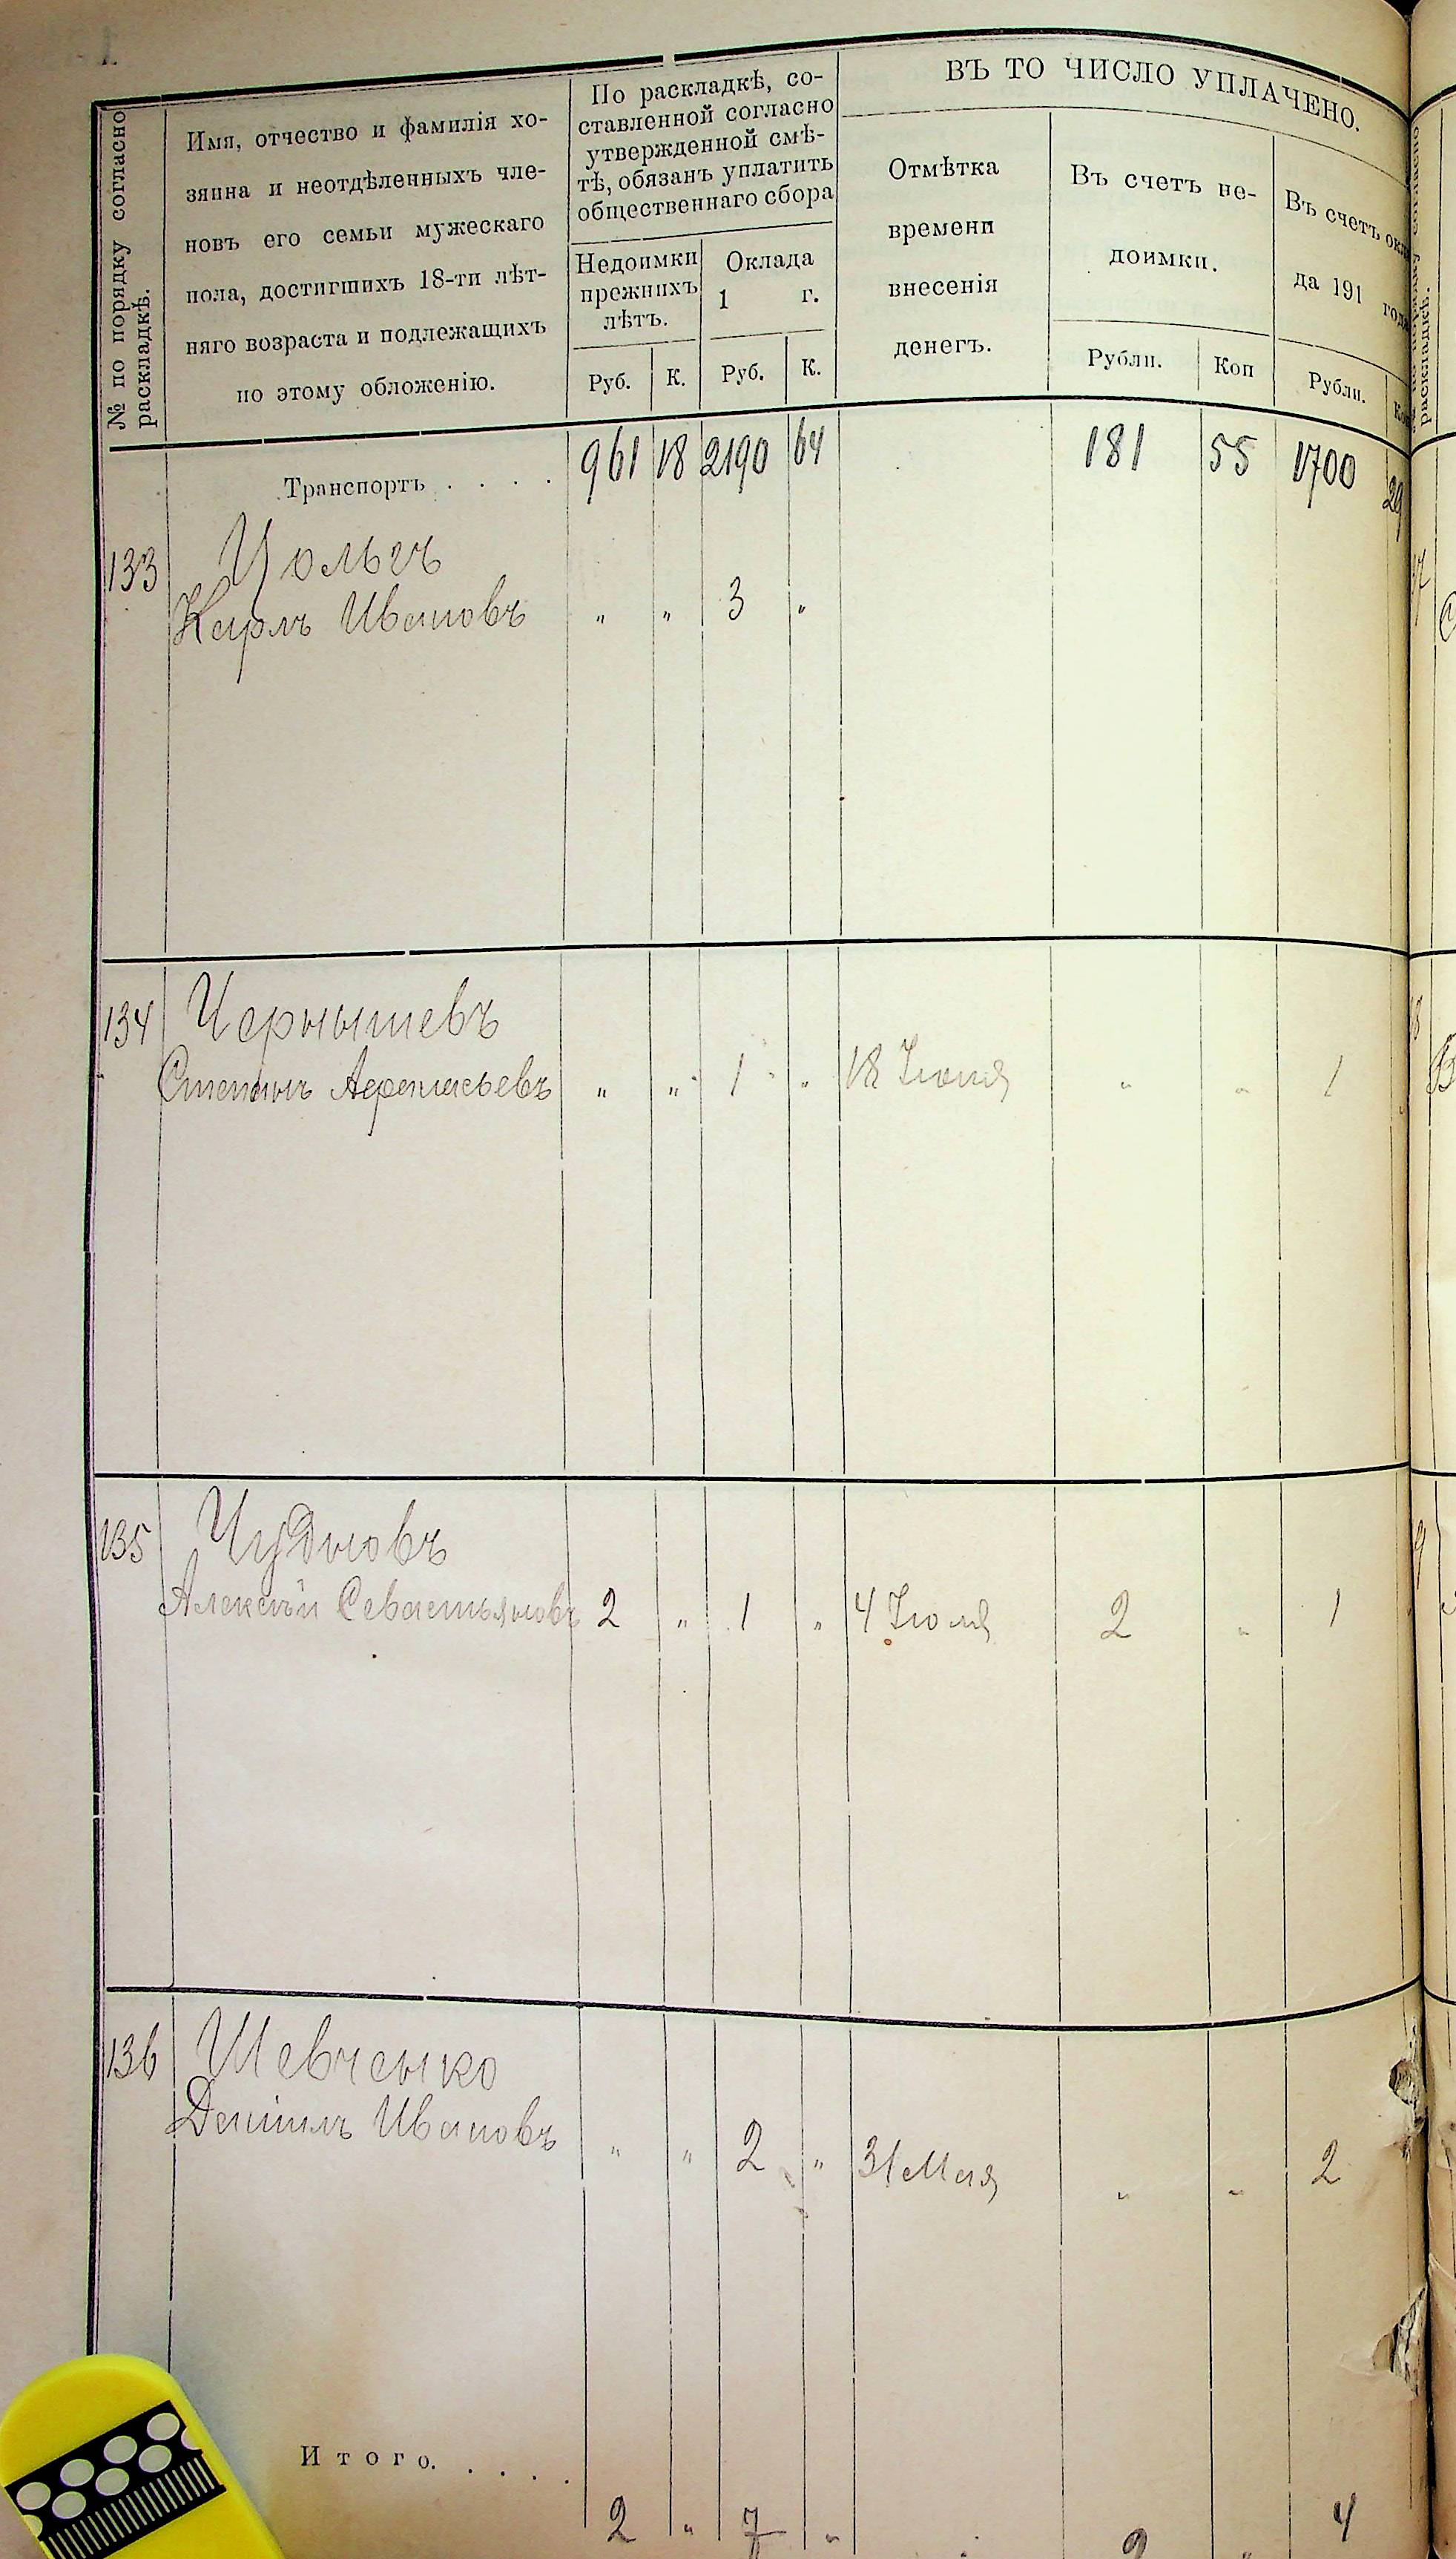 № по порядку согласно
раскладкѣ.
Имя, отчество и фамилія хо-
зяина и неотдѣленныхъ чле-
новъ его семьи мужескаго
пола, достигшихъ 18-ти лѣт-
няго возраста и подлежащихъ
по этому обложенію.
По раскладкѣ, со-
ставленной согласно
утвержденной смѣ-
тѣ, обязанъ уплатить
общественнаго сбора
Недоимки
прежнихъ
лѣтъ.
Оклада
1 г.
Руб. К. Руб. К.
ВЪ ТО ЧИСЛО УПЛАЧЕНО.
Отмѣтка
времени
внесенія
денегъ.
Въ счетъ не-
доимки.
Рубли. Коп
Въ счетъ окла
да 191 года
Рубли. Коп
Транспортъ . . . . 961 18 2190 64 181 55 1700 29
133 Цольгъ
Карлъ Ивановъ „ „ 3 „
134 Чернышевъ
Степанъ Афанасьевъ „ „ 1 „ 18 Іюня „ „ 1
135 Чудновъ
Алексѣй Севастьяновъ 2 „ 1 „ 4 Іюля 2 „ 1
136 Шевченко
Даніилъ Ивановъ „ „ 2 „ 31 Мая „ „ 2
Итого. . . . . 2 „ 7 „ 2 „ 4